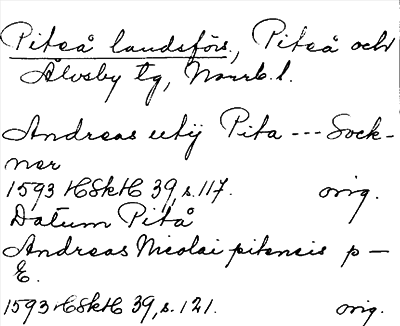 Piteå landsförs., Piteå och
Älvsby tg, Norrb. l.
Andreas utij Pita --- Sock-
ner
1593 HSkH 39, s. 117. orig.
Datum Pitå
Andreas Nicolai pitensis p —
E.
1593 HSkH 39, s. 121. orig.